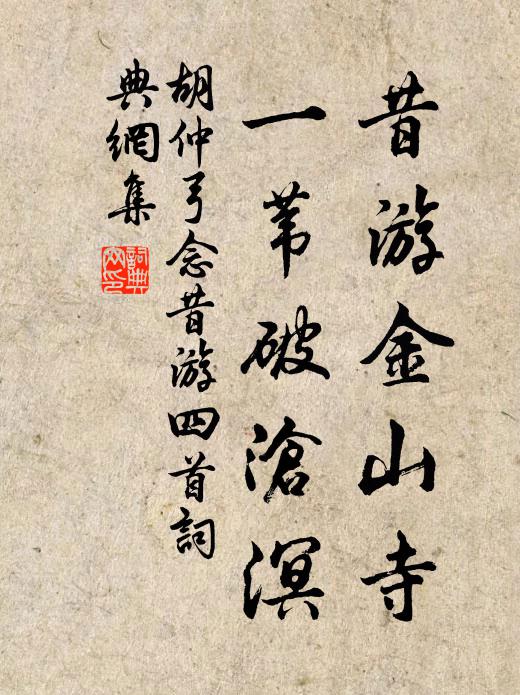 昔游金山寺
一苇破滄溟
胡仲弓念昔游四首詞
典網集
詞典